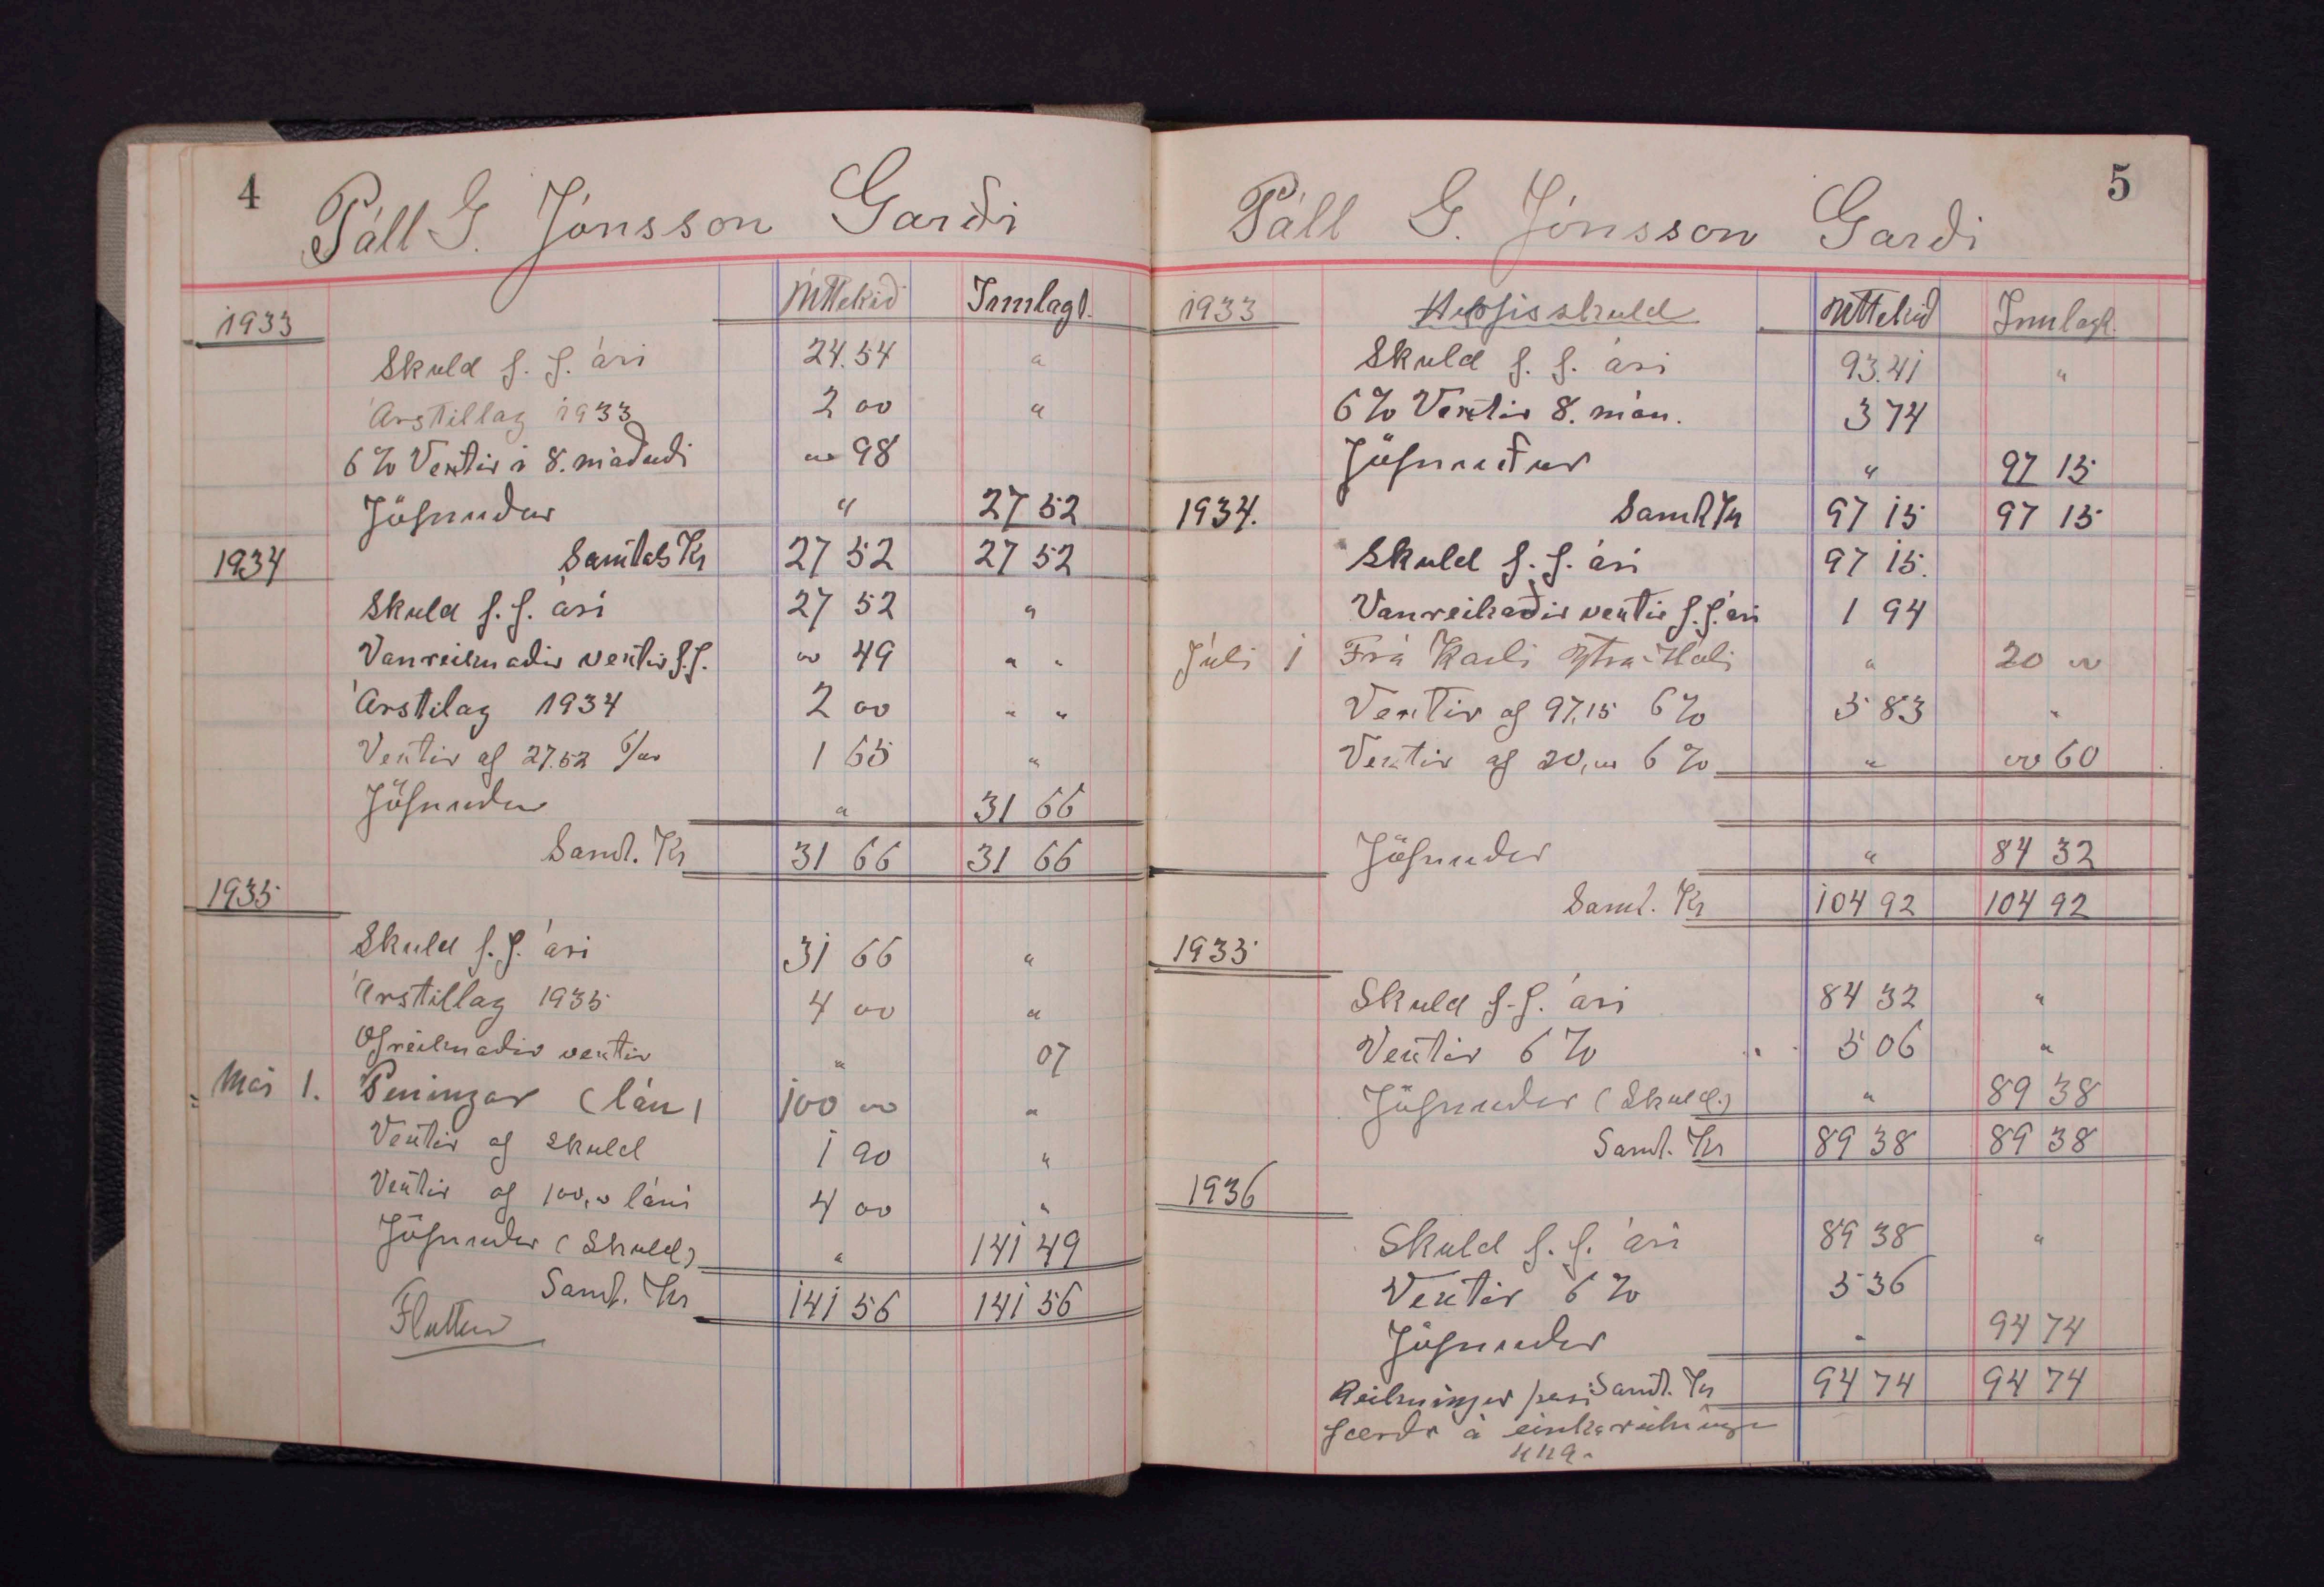 4
Páll G. Jónsson Garði
Úttekið Innlagt.
1933
Skuld f. f. ári 24.54 "
Árstillag 1933 2 00 "
6% Vextir í 8. mánuði 00 98
Jöfnuður " 27 52
Samtals Kr 27 52 27 52
1934
Skuld f. f. ári 27 52 "
Vanreiknaðir vextir f.f. 00 49 " "
Árstilag 1934 2 00 " "
Vextir af 27.52 6/00 1 65 "
Jöfnuður " 31 66
Samt. Kr 31 66 31 66
1935
Skuld f. f. ári 31 66 "
Árstillag 1935 4 00 "
Ofreiknaðir vextir " 07
Maí 1. Peningar (lán) 100 00 "
Vextir af skuld 1 90 "
Vextir af 100,00 láni 4 00 "
Jöfnuður (Skuld) " 141 49
Samt. Kr 141 56 141 56
Fluttur
5
Páll G. Jónsson Garði
1933 Úttekið Innlagt.
Skuld f. f. ári 93.41 "
6% Vextir 8. mán. 3 74
Jöfnuður " 97 15
1934. Samt Kr 97 15 97 15
Skuld f. f. ári 97 15.
Vanreiknaðir vextir f.f. ári 1 94
Júli 1 Frá Karli Ytra-Hóli " 20 00
Vextir af 97,15 6% 5 83 "
Vextir af 20,00 6% " 00 60
Jöfnuður " 84 32
Samt. Kr 104 92 104 92
1935
Skuld f. f. ári 84 32 "
Vextir 6% 5 06 "
Jöfnuður (Skuld.) " 89 38
Samt. Kr 89 38 89 38
1936
Skuld f. f. ári 89 38 "
Vextir 6% 5 36
Jöfnuður " 94 74
Samt. Kr 94 74 94 74
Reikningur þessi
færður á einkareikning